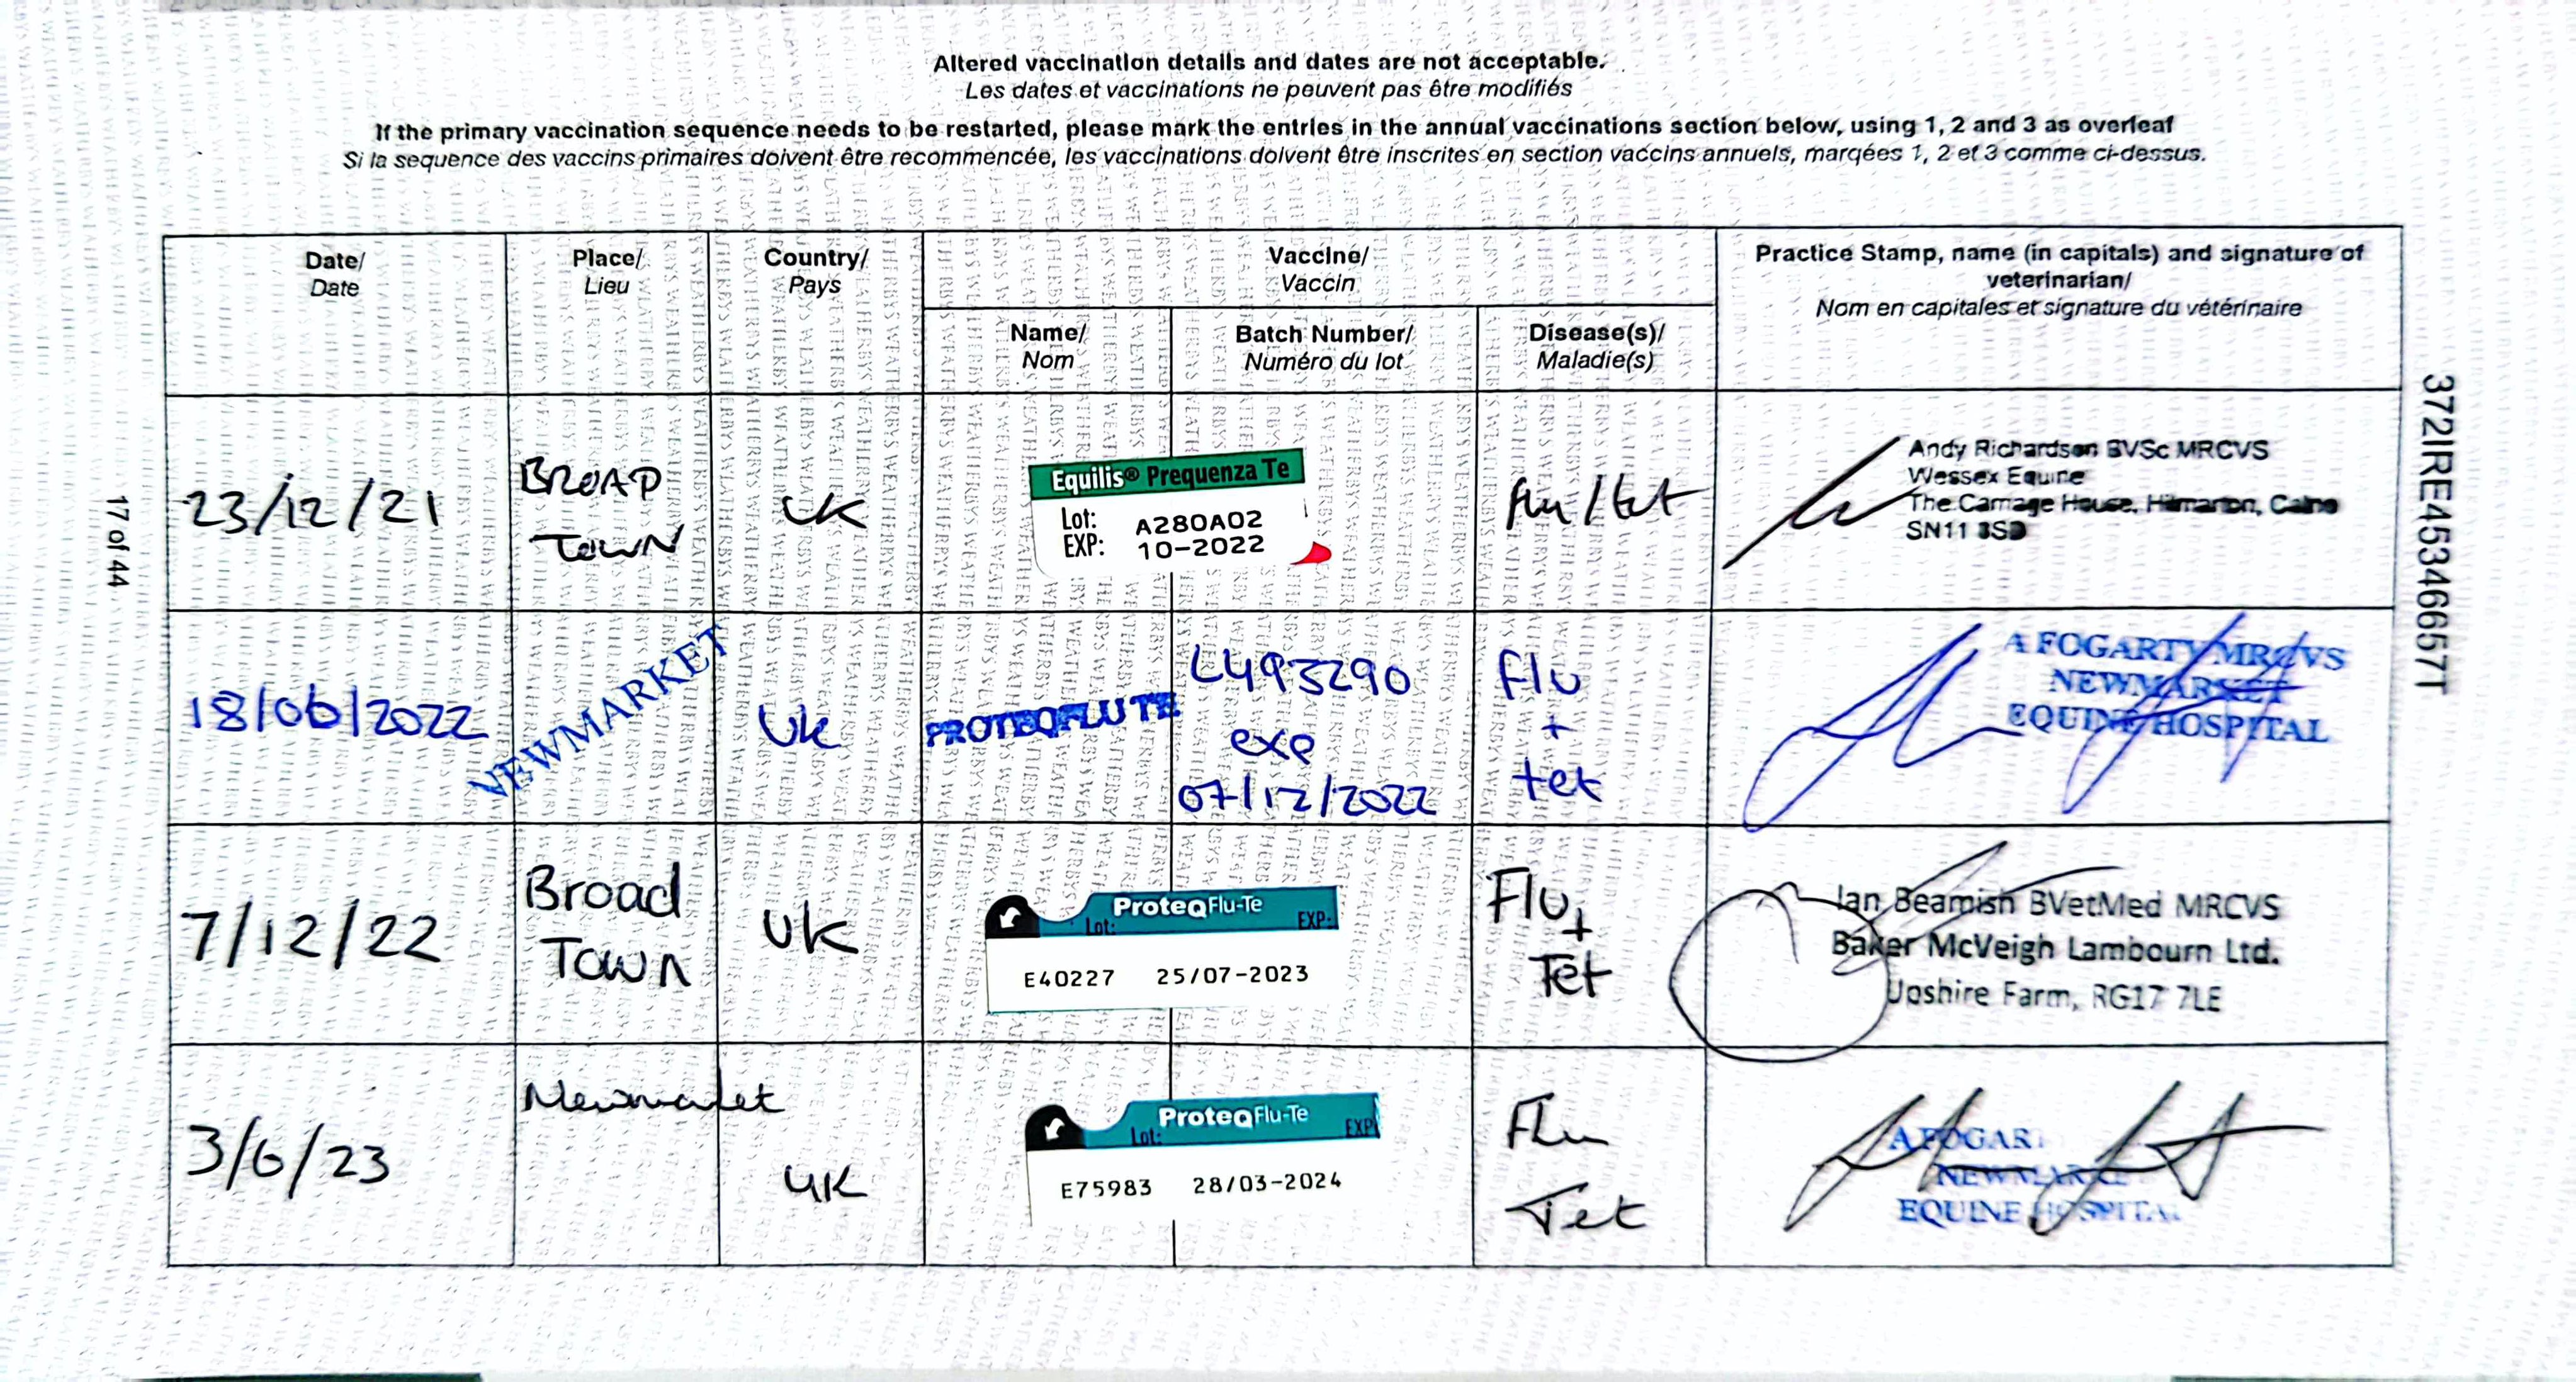 Altered vaccination details and dates are not acceptable.
Les dates et vaccinations ne peuvent pas être modifiés
If the primary vaccination sequence needs to be restarted, please mark the entries in the annual vaccinations section below, using 1, 2 and 3 as overleaf
Si la sequence des vaccins primaires doivent être recommencée, les vaccinations doivent être inscrites en section vaccins annuels, marqées 1, 2 et 3 comme ci-dessus.
Date/
Date
Place/
Lieu
Country/
Pays
Vaccine/
Vaccin
Practice Stamp, name (in capitals) and signature of
veterinarian/
Nom en capitales et signature du vétérinaire
Name/
Nom
Batch Number/
Numéro du lot
Disease(s)/
Maladie(s)
23/12/21
BROAD
TOWN
UK
Equilis® Prequenza Te
Lot: A280A02
EXP: 10-2022
flu/tet
Andy Richardson BVSc MRCVS
Wessex Equine
The Carriage House, Hilmarton, Calne
SN11 3SD
18/06/2022
NEWMARKET
UK
PROTEQFLU TE
L493290
exp
07/12/2022
Flu
+
tet
A FOGARTY MRCVS
NEWMARKET
EQUINE HOSPITAL
7/12/22
Broad
Town
UK
ProteqFlu-Te
Lot: EXP:
E40227 25/07-2023
Flu +
Tet
Ian Beamish BVetMed MRCVS
Baker McVeigh Lambourn Ltd.
Upshire Farm, RG17 7LE
3/6/23
Newmarket
UK
ProteqFlu-Te
Lot: EXP
E75983 28/03-2024
Flu
Tet
A FOGAR
NEWMARKE
EQUINE HOSPITAL
17 of 44
372IRE45346657T